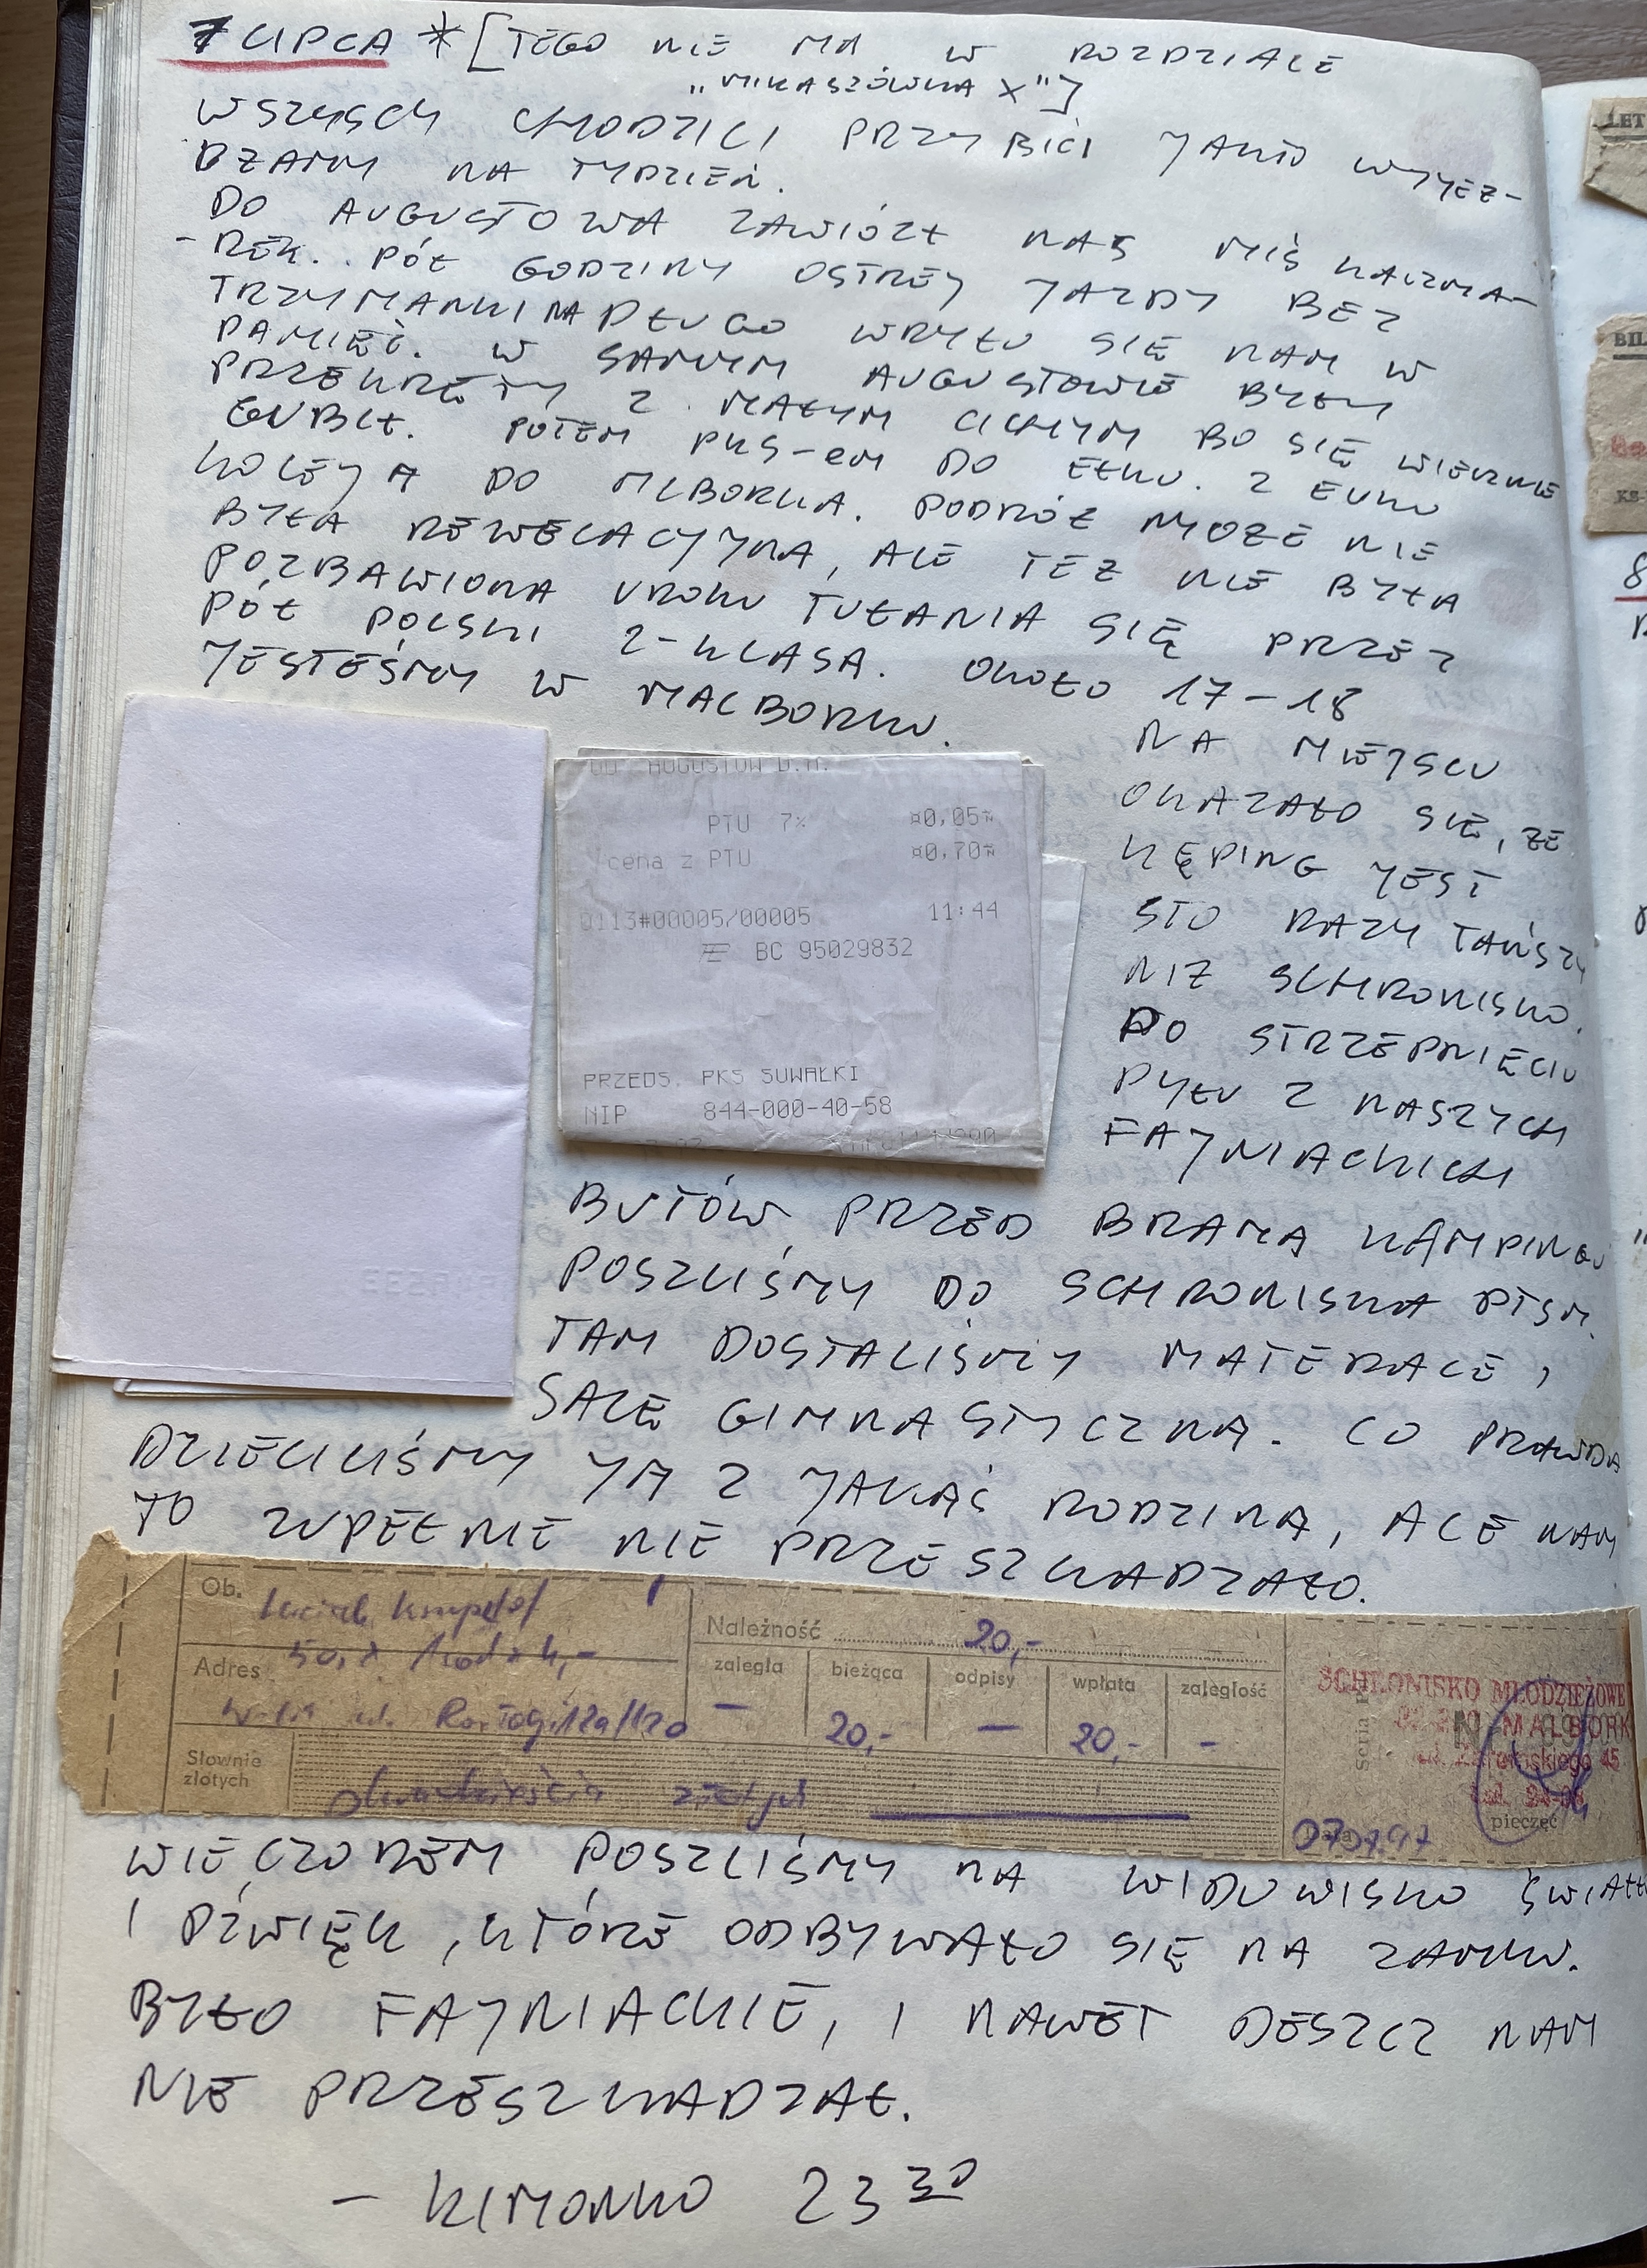 7 LIPCA * [TEGO NIE MA W ROZDZIALE
"MIKASZÓWKA X"]
WSZYSCY CHODZILI PRZYBICI JAKO WYJEŻ-
DŻAMY NA TYDZIEŃ.
DO AUGUSTOWA ZAWIÓZŁ NAS MIŚ KACZMA-
-REK. PÓŁ GODZINY OSTREJ JAZDY BEZ
TRZYMANKI NA DŁUGO WRYŁO SIĘ NAM W
PAMIĘĆ. W SAMYM AUGUSTOWIE BYŁY
PRZEKRĘTY Z MAŁYM CICHYM BO SIĘ WIECZNIE
GUBIŁ. POTEM PKS-em DO EŁKU. Z EŁKU
KOLEJĄ DO MLBORKA. PODRÓŻ MOŻE NIE
BYŁA REWELACYJNA, ALE TEŻ NIE BYŁA
POZBAWIONA UROKU TUŁANIA SIĘ PRZEZ
PÓŁ POLSKI 2-KLASĄ. OKOŁO 17-18
JESTEŚMY W MALBORKU.
NA MIEJSCU
OKAZAŁO SIĘ, ŻE
KĘPING JEST
STO RAZY TAŃSZY
NIŻ SCHRONISKO.
PO STRZEPNIĘCIU
PYŁU Z NASZYCH
FAJNIACKICH
BUTÓW PRZED BRAMĄ KAMPINGU
POSZLIŚMY DO SCHRONISKA PTSM.
TAM DOSTALIŚMY MATERACE,
SALĘ GIMNASTYCZNĄ. CO PRAWDA
DZIELILIŚMY JĄ Z JAKĄŚ RODZINĄ, ALE NAM
TO ZUPEŁNIE NIE PRZESZKADZAŁO.
OD AUGUSTÓW D.A.
PTU 7% ¤0,05¤
cena z PTU ¤0,70¤
0113#00005/00005 11:44
BC 95029832
PRZEDS. PKS SUWAŁKI
NIP 844-000-40-58
Ob.
Należność 20,-
Adres
zaległa bieżąca odpisy wpłata zaległość
- 20,- - 20,- -
W-wa ul.
Słownie złotych dwadzieścia złotych
SCHRONISKO MŁODZIEŻOWE
MALBORK
ul. Żeromskiego 45
pieczęć
07.07.97
WIECZOREM POSZLIŚMY NA WIDOWISKO ŚWIATŁO
I DŹWIĘK, KTÓRE ODBYWAŁO SIĘ NA ZAMKU.
BYŁO FAJNIACKIE, I NAWET DESZCZ NAM
NIE PRZESZKADZAŁ.
- KIMONKO 23 30